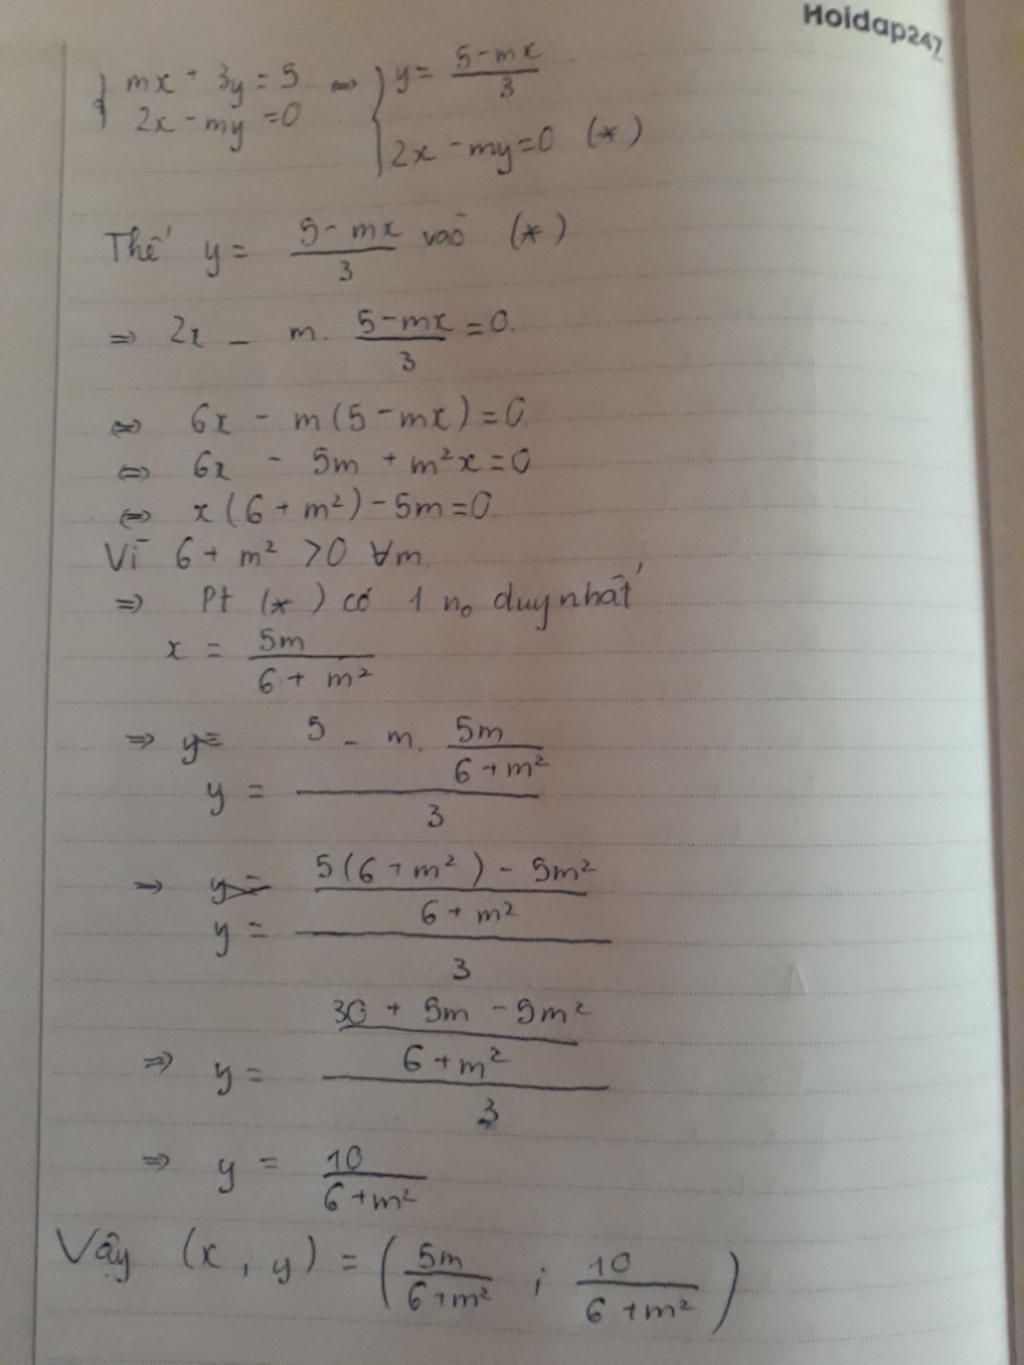 Hoidap247
{ mx + 3y = 5 ⇔ { y = (5 - mx)/3
2x - my = 0 2x - my = 0 (*)
Thế y = (5 - mx)/3 vào (*)
⇒ 2x - m. (5 - mx)/3 = 0.
⇔ 6x - m(5 - mx) = 0
⇔ 6x - 5m + m²x = 0
⇔ x(6 + m²) - 5m = 0.
Vì 6 + m² > 0 ∀m
⇒ Pt (*) có 1 no duy nhất
x = 5m/(6 + m²)
⇒ y = (5 - m. 5m/(6 + m²))/3
⇒ y = ((5(6 + m²) - 5m²)/(6 + m²))/3
⇒ y = ((30 + 5m - 5m²)/(6 + m²))/3
⇒ y = 10/(6 + m²)
Vậy (x, y) = (5m/(6 + m²) ; 10/(6 + m²))